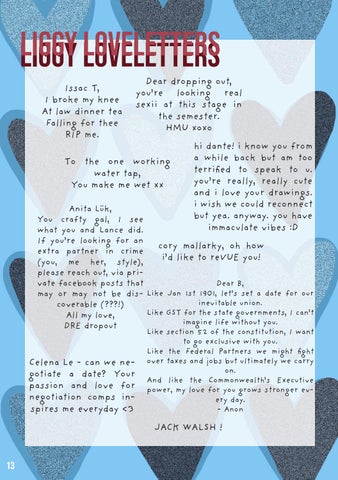 LIGGY LOVELETTERS
Issac T,
I broke my knee
At law dinner tea
Falling for thee
RIP me.
Dear dropping out,
you're looking real
sexii at this stage in
the semester.
HMU xoxo
To the one working
water tap,
You make me wet xx
hi dante! i know you from
a while back but am too
terrified to speak to u.
you're really, really cute
and i love your drawings.
i wish we could reconnect
but yea. anyway. you have
immaculate vibes :D
Anita Lük,
You crafty gal, I see
what you and Lance did.
If you're looking for an
extra partner in crime
(you, me her, style),
please reach out, via pri-
vate facebook posts that
may or may not be dis-
coverable (???!)
All my love,
DRE dropout
cory mallarky, oh how
i'd like to reVUE you!
Dear B,
Like Jan 1st 1901, let's set a date for our
inevitable union.
Like GST for the state governments, I can't
imagine life without you.
Like section 52 of the constitution, I want
to go exclusive with you.
Like the Federal Partners we might fight
over taxes and jobs but ultimately we carry
on.
And like the Commonwealth's Executive
power, my love for you grows stronger ev-
ery day.
- Anon
Celena Le - can we ne-
gotiate a date? Your
passion and love for
negotiation comps in-
spires me everyday <3
JACK WALSH !
13